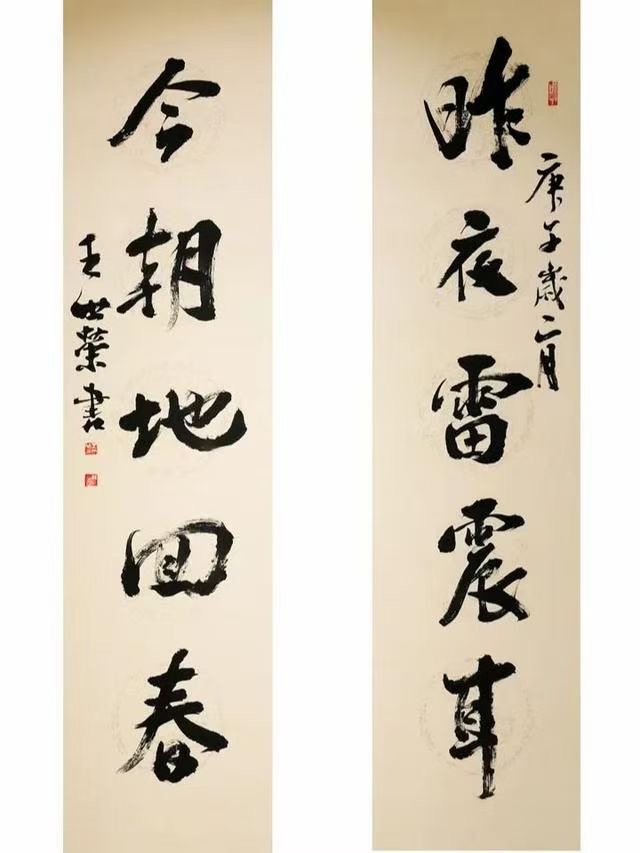 昨夜雷震耳
庚子歲二月
今朝地回春
王世榮書